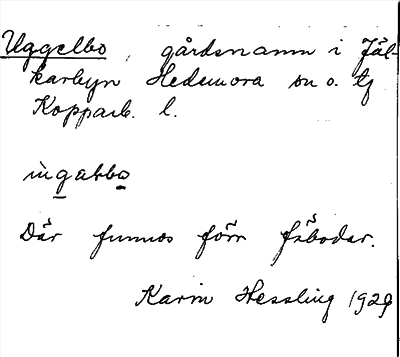 Uggelbo, gårdsnamn i Jäl-
karbyn Hedemora sn o. tg
Kopparb. l.
ùgabbo
Där funnos förr fäbodar.
Karin Hessling 1929